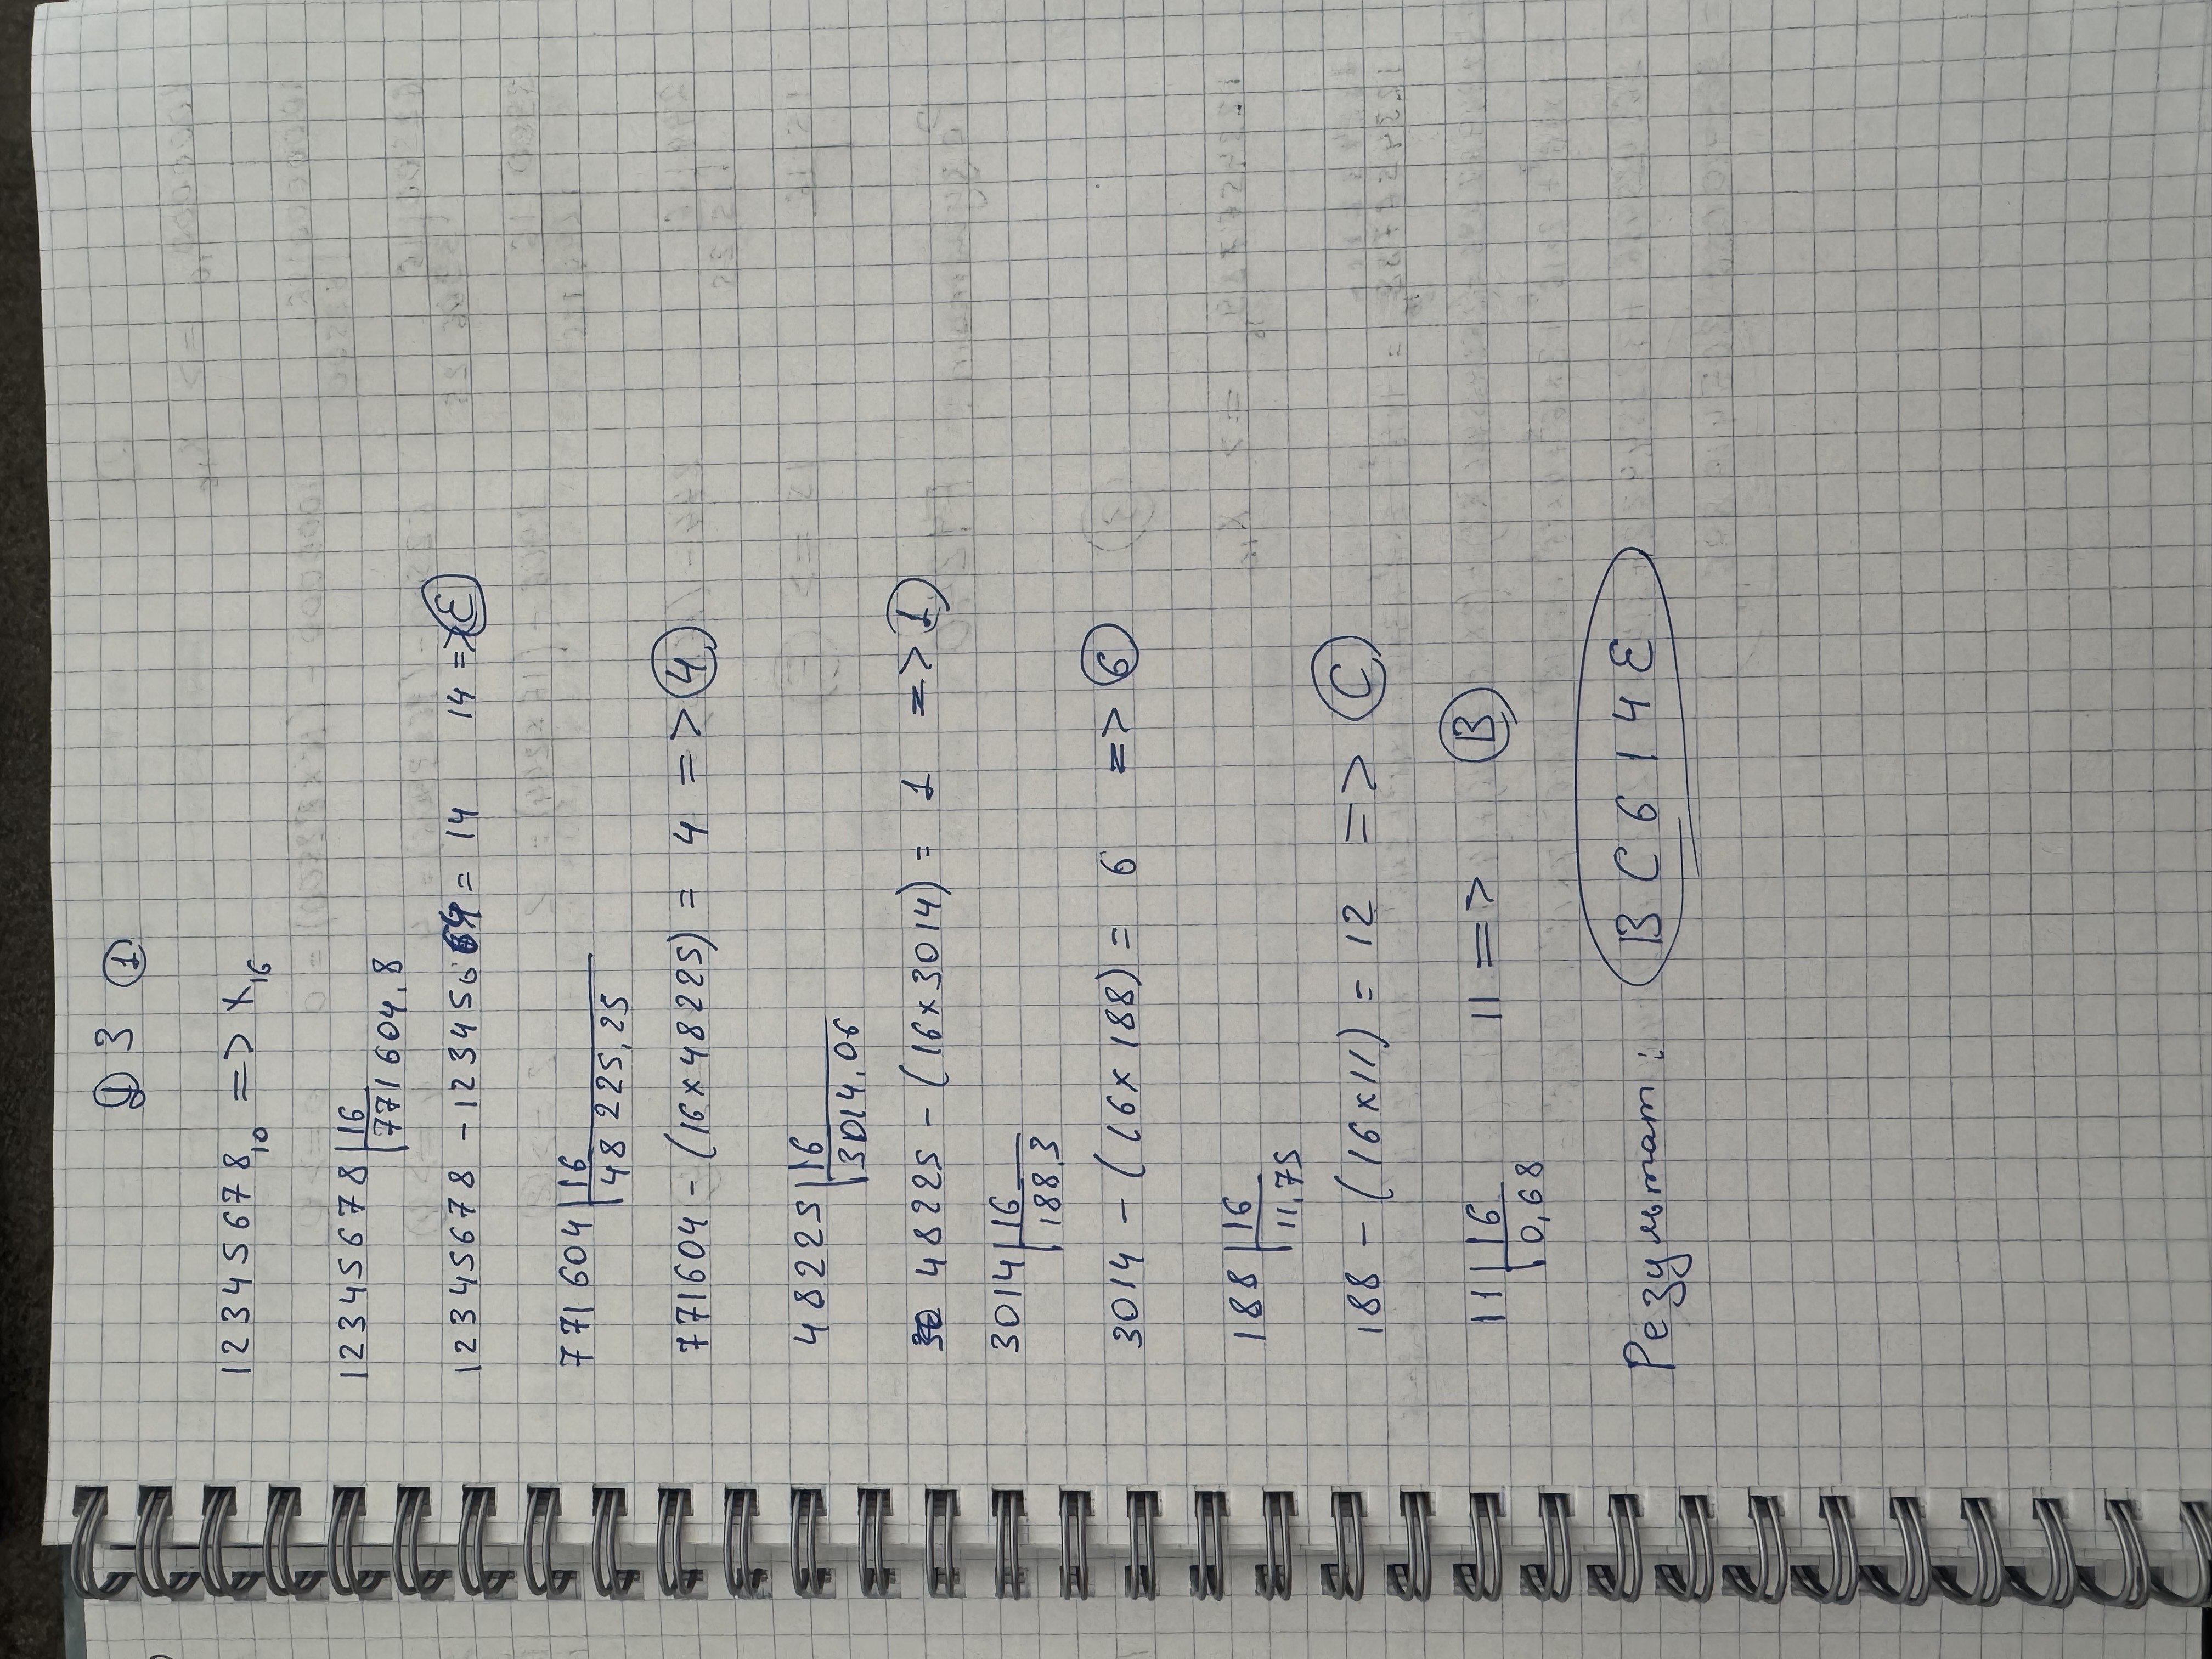 ДЗ 1
12345678₁₀ => X₁₆
12345678 | 16
771604,8
12345678 - 12345664 = 14 14 => E
771604 | 16
48225,25
771604 - (16×48225) = 4 => 4
48225 | 16
3014,06
48225 - (16×3014) = 1 => 1
3014 | 16
188,3
3014 - (16×188) = 6 => 6
188 | 16
11,75
188 - (16×11) = 12 => C
11 | 16 11 => B
0,68
Результат: BC614E